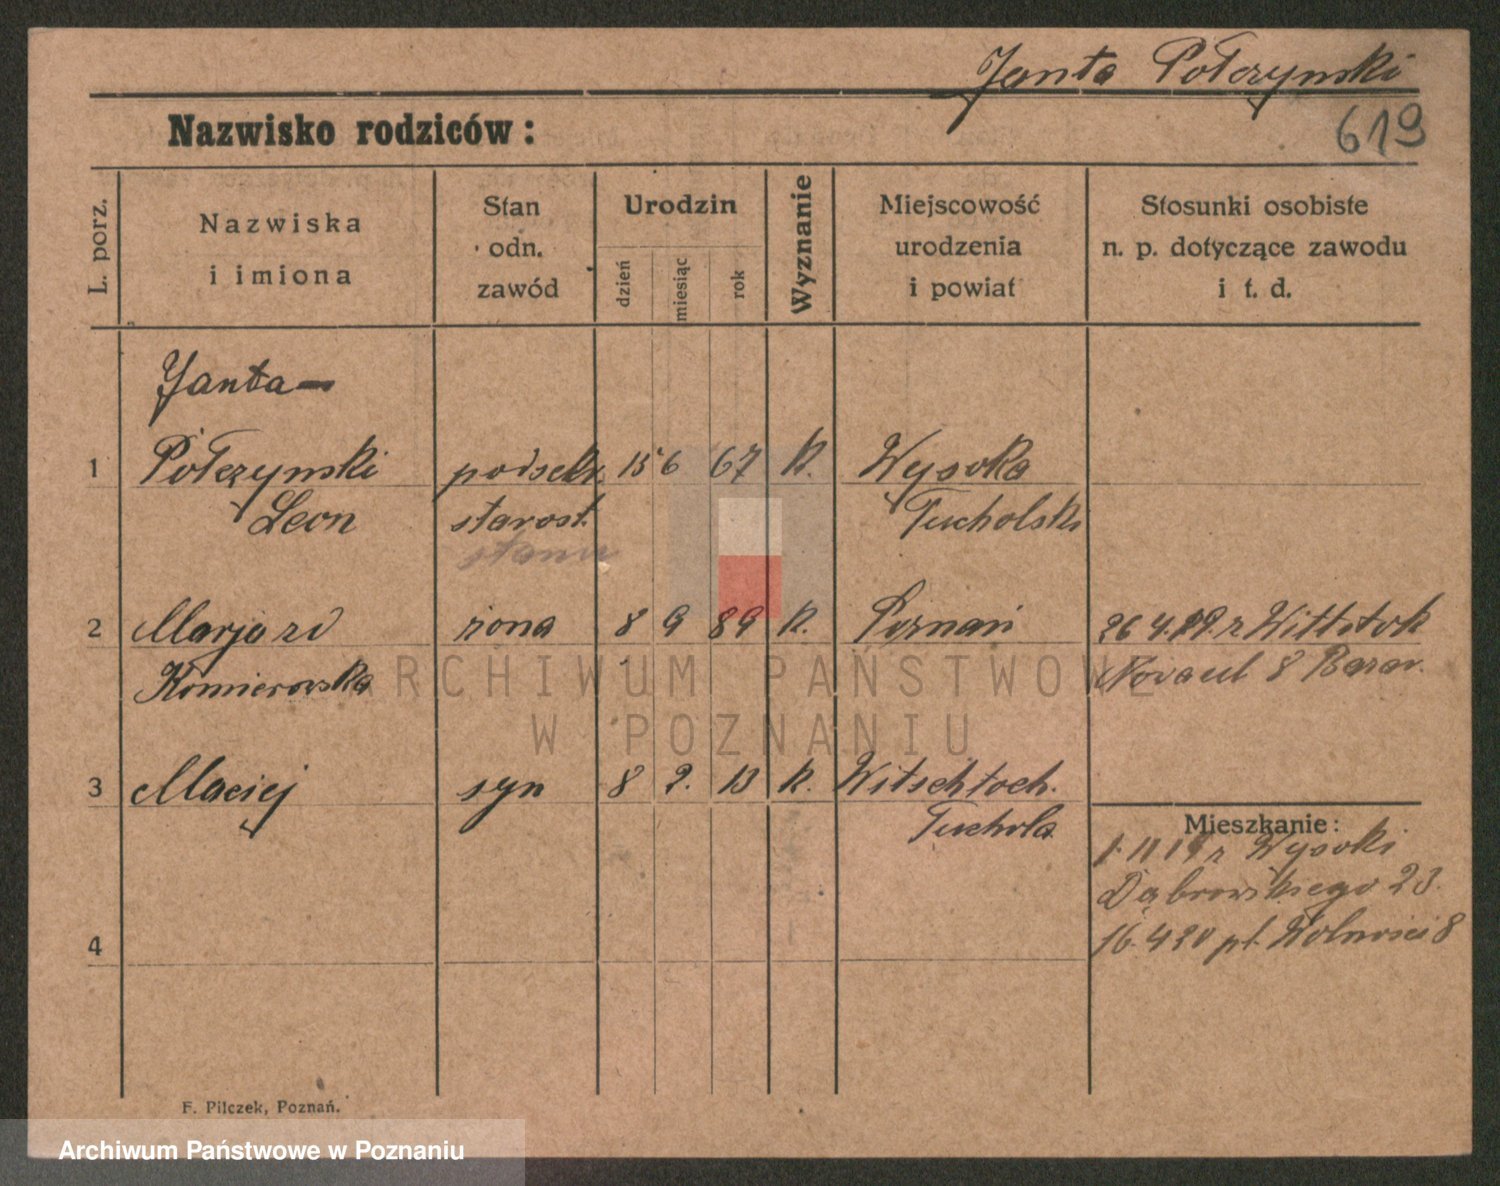 Janta Połczynski
619
Nazwisko rodziców:
L. porz.
Nazwiska
i imiona
Stan
odn.
zawód
Urodzin
dzień
miesiąc
rok
Wyznanie
Miejscowość
urodzenia
i powiat
Stosunki osobiste
n. p. dotyczące zawodu
i t. d.
Janta—
1 Połczynski podsekr. 15 6 67 k. Wysoka
Leon starost. Tucholski
2 Marja zd żona 8 9 89 k. Poznań 26 4.19. z Wittstok
Komierowska 8 Bazar.
3 Maciej syn 8 2. 13 k. Witschtoch.
Tuchola
Mieszkanie:
1 11 19 z Wysoki
Dąbrowskiego 23.
4
16. 4 20 pl. Wolności 8
F. Pilczek, Poznań.
ARCHIWUM PAŃSTWOWE
W POZNANIU
Archiwum Państwowe w Poznaniu